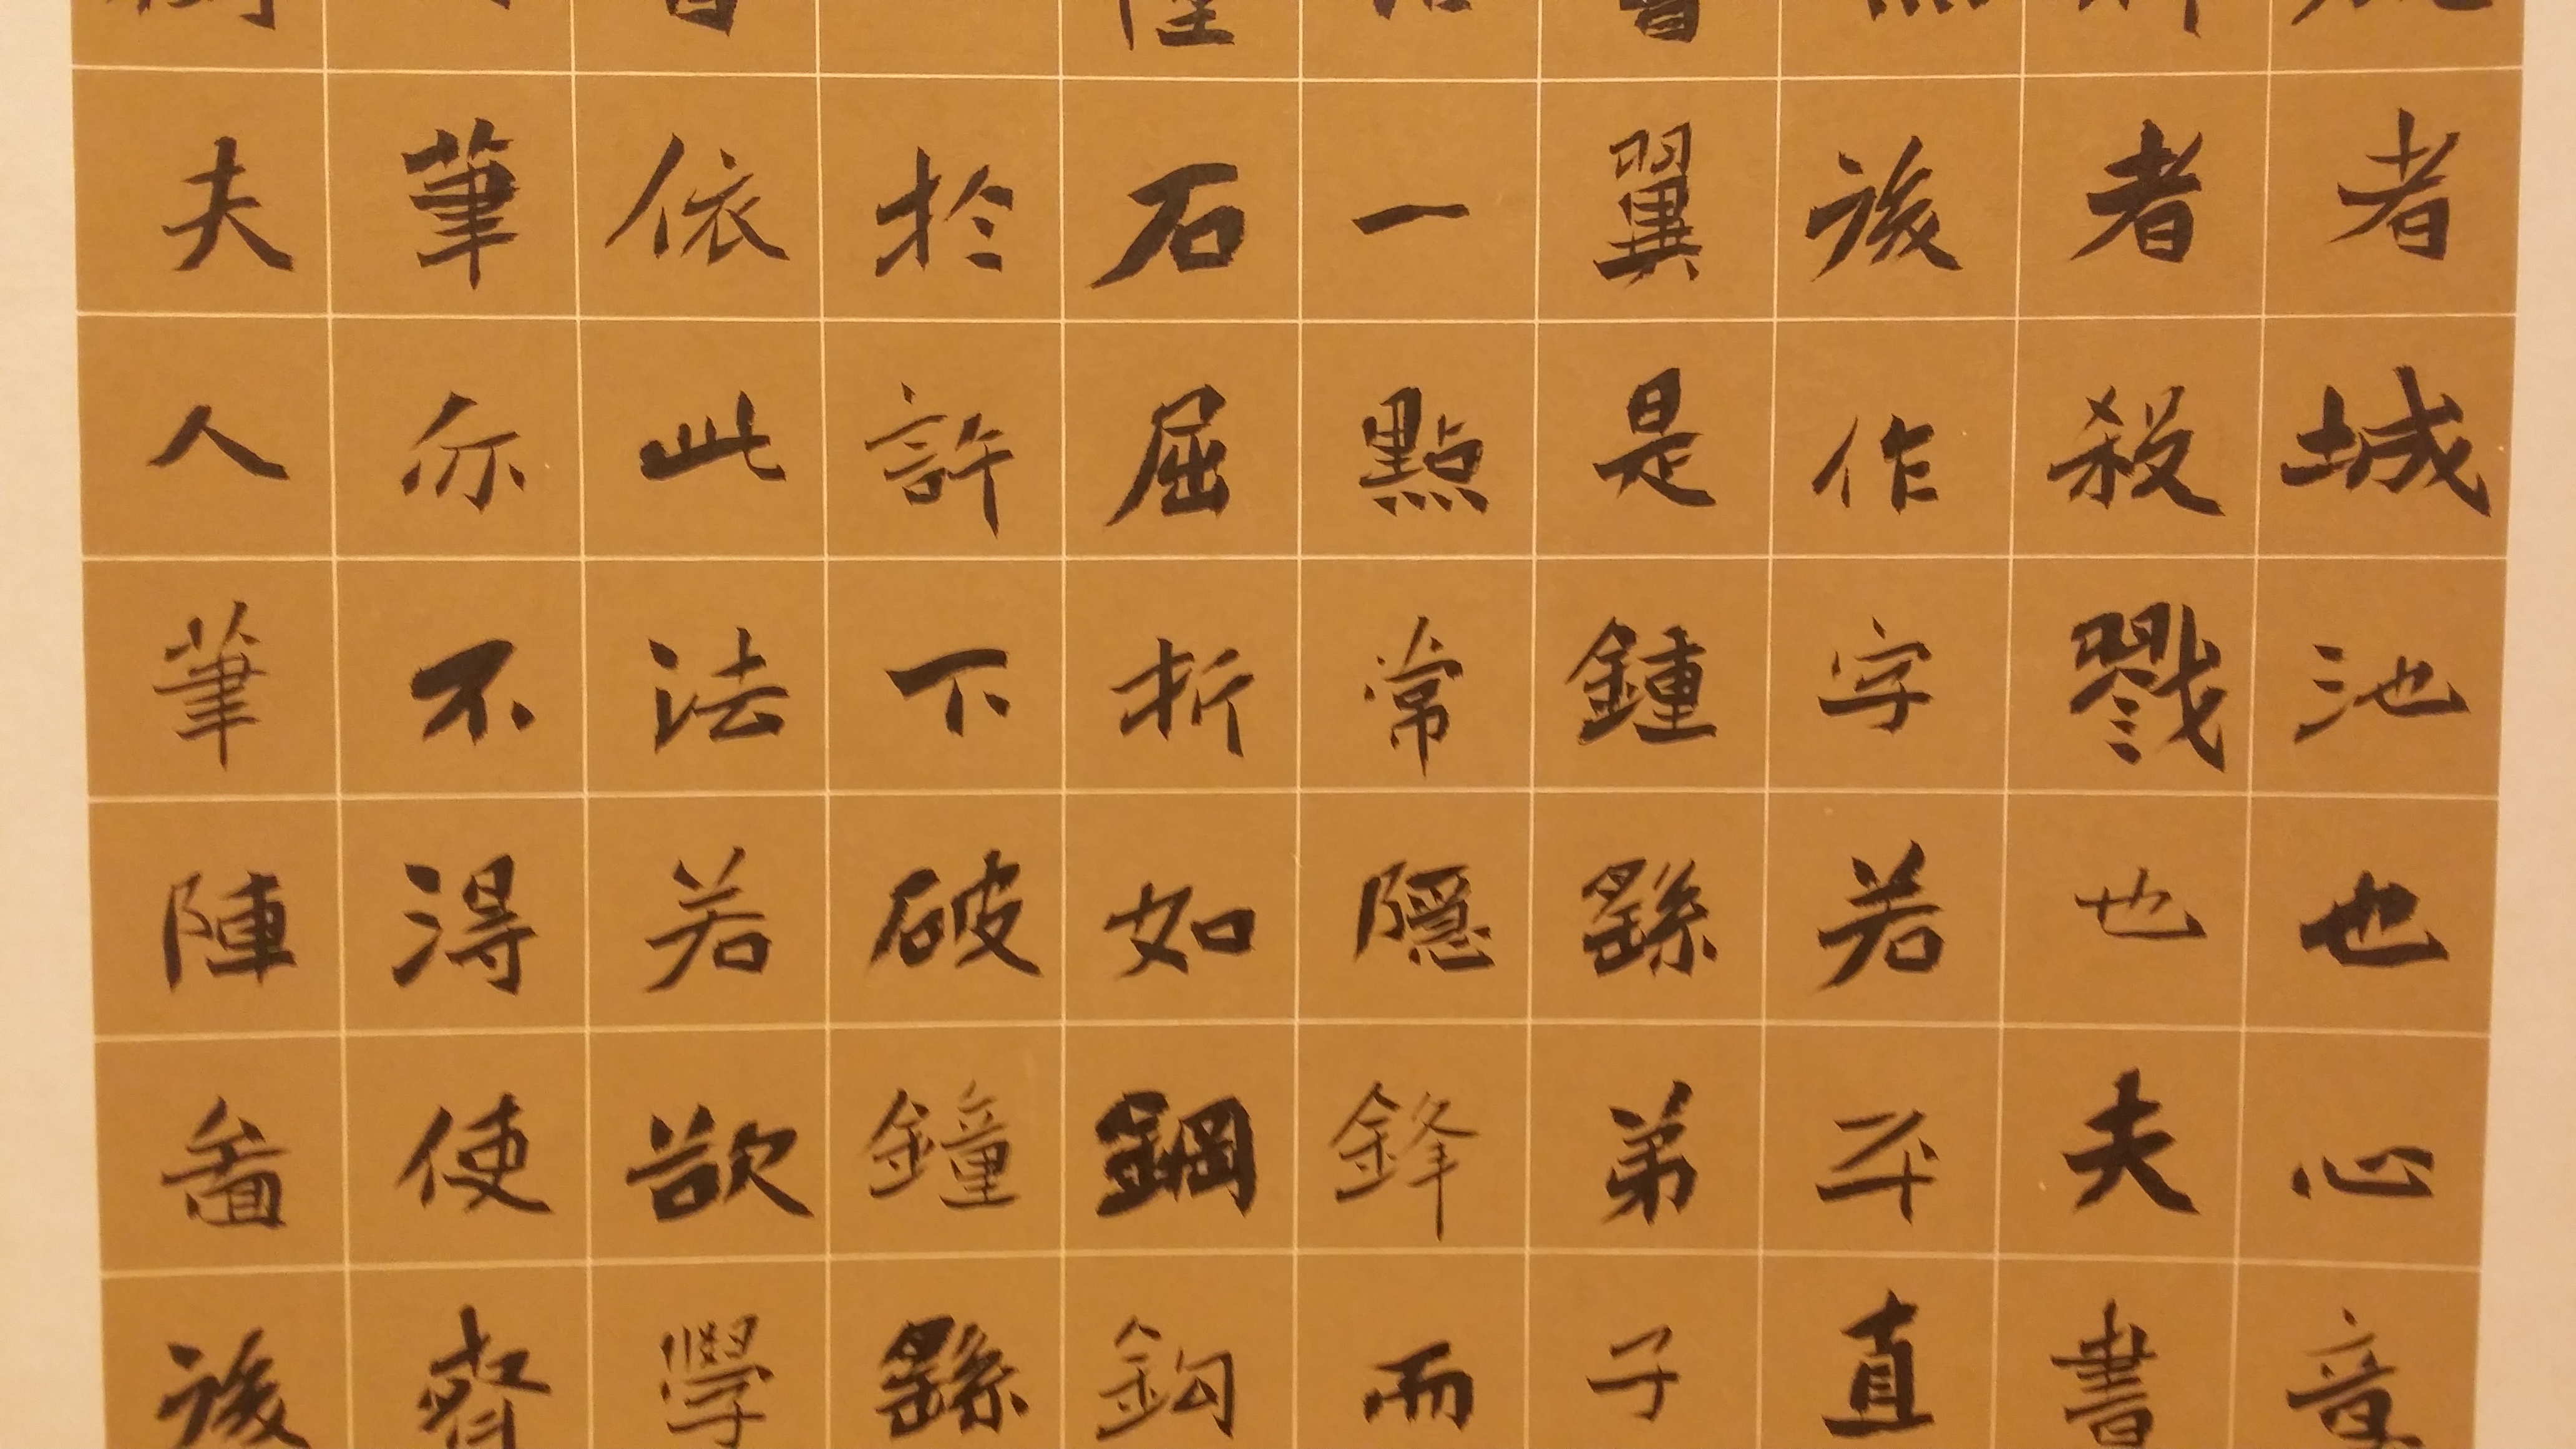 者城池也心意
者殺戮也夫書
後作字若平直
翼是鍾繇弟子
一點常隱鋒而
石屈折如鋼鈎
於許下破鐘繇
依此法若欲學
筆亦不得使齊
夫人筆陣啚後